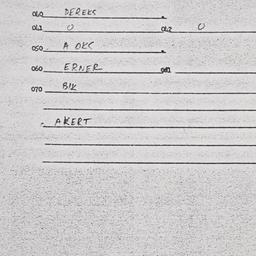 040 DEREKS
041 0 042 0
050 A OKS
060 ERNER 061
070 BIK
AKERT